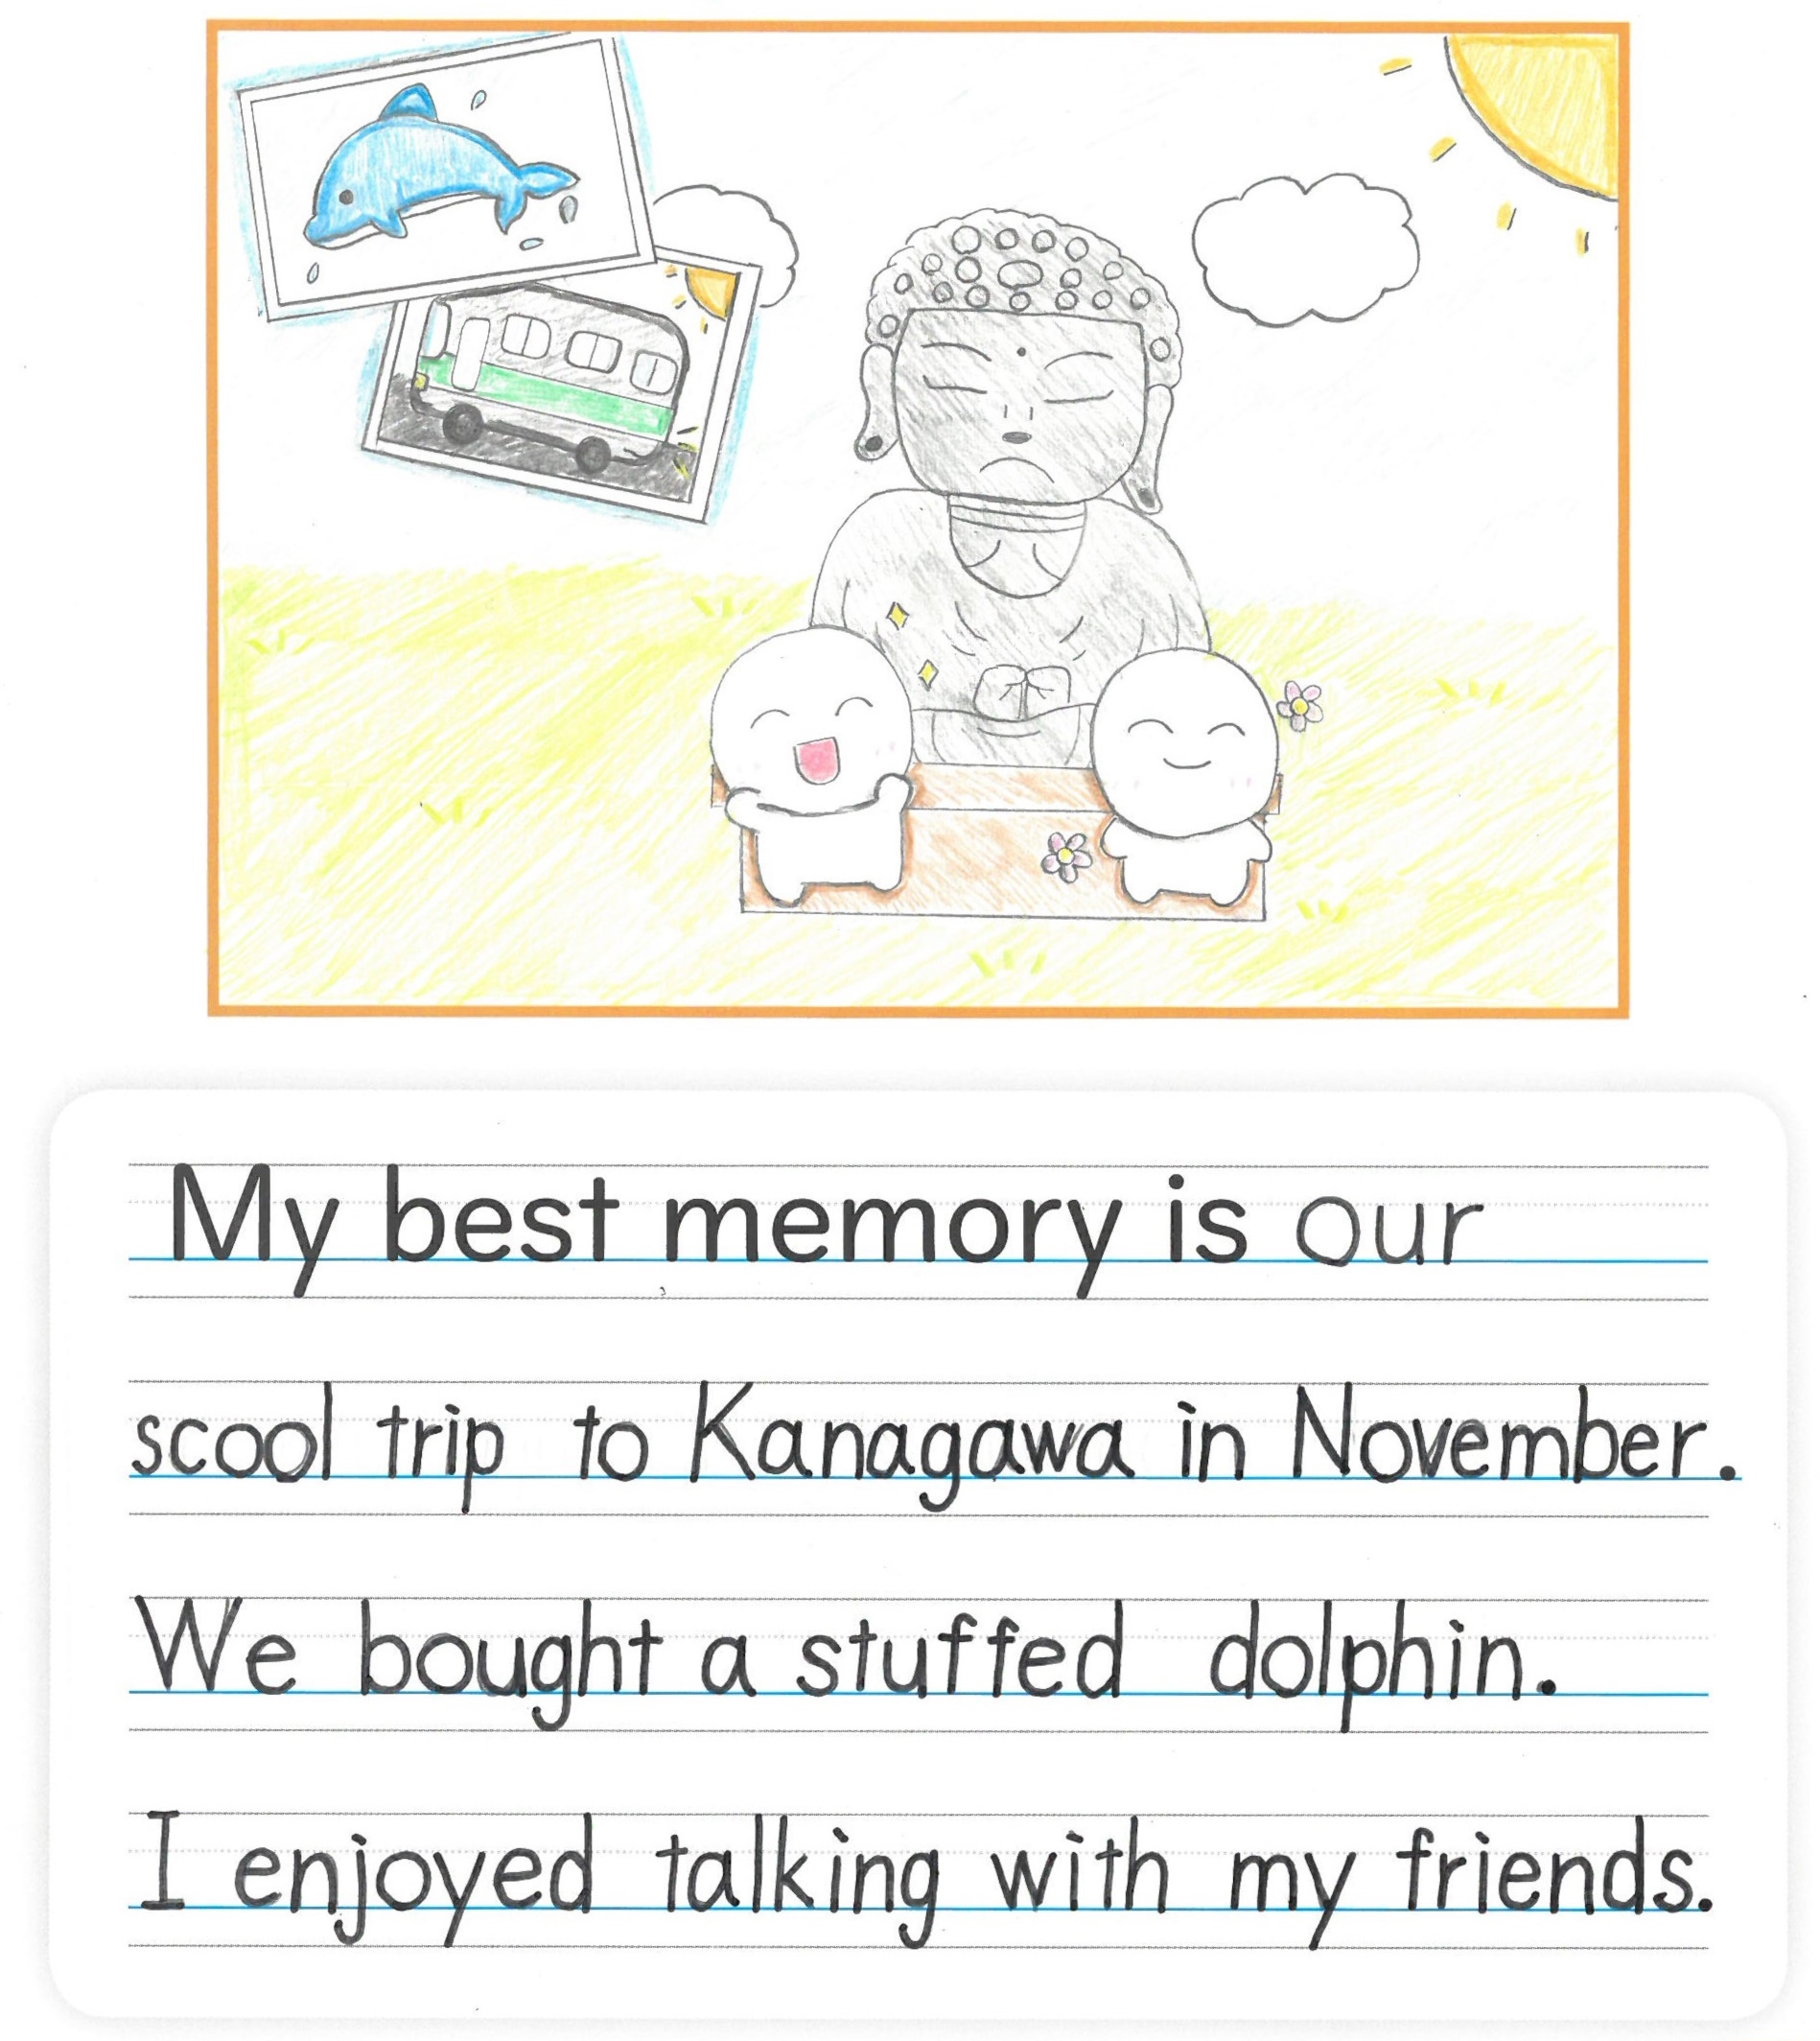 My best memory is our
scool trip to Kanagawa in November.
We bought a stuffed dolphin.
I enjoyed talking with my friends.